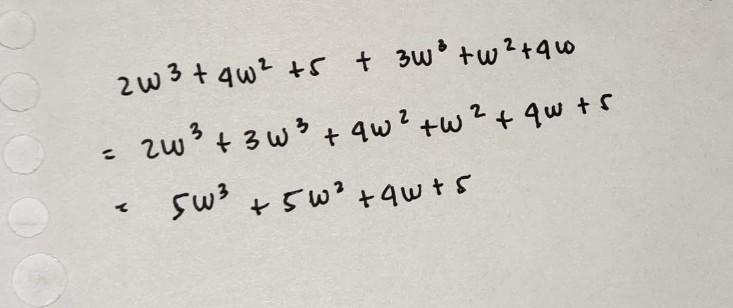 2w³ + 4w² + 5 + 3w³ + w² + 4w
= 2w³ + 3w³ + 4w² + w² + 4w + 5
= 5w³ + 5w² + 4w + 5